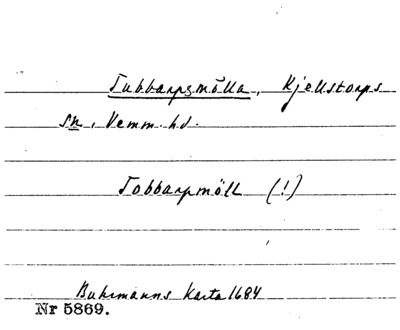 Tubbarpsmölla, Kjellstorps
sn, Vemm. hd.
Tobbarpmöll (!)
Buhrmanns Karta 1684
Nr 5869.